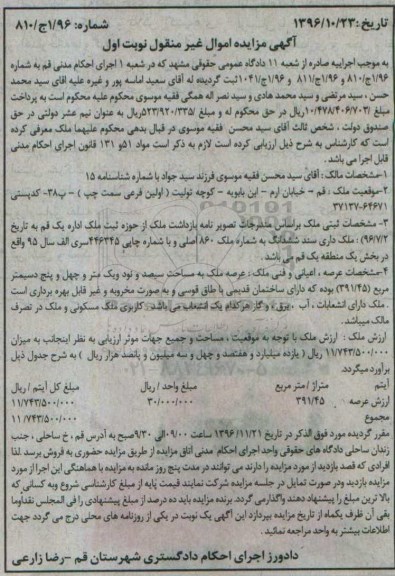 تاریخ: ۱۳۹۶/۱۰/۲۳ شماره: ۱/۹۶ج/۸۱۰
آگهی مزایده اموال غیر منقول نوبت اول
به موجب اجراییه صادره از شعبه ۱۱ دادگاه عمومی حقوقی مشهد که در شعبه ۱ اجرای احکام مدنی قم به شماره
۱/۹۶ج/۸۱۰ و ۱/۹۶ج/۸۱۱ و ۱/۹۶ج/۱۰۴۱ثبت گردیده له آقای سعید اماسه پور و غیره علیه اقای سید محمد
حسن ، سید مرتضی و سید محمد هادی و سید نصر اله همگی فقیه موسوی محکوم علیه محکوم است به پرداخت
مبلغ /۱۰/۴۷۸/۴۰۶/۷۰۳ریال در حق محکوم له و مبلغ /۵۲۳/۹۲۰/۳۳۵ریال به عنوان نیم عشر دولتی در حق
صندوق دولت ، شخص ثالث آقای سید محسن فقیه موسوی در قبال بدهی محکوم علیهما ملک معرفی کرده
است که کارشناس به شرح ذیل ارزیابی کرده است لازم به ذکر است مواد ۵۱و ۱۳۱ قانون اجرای احکام مدنی
قابل اجرا می باشد .
۱-مشخصات مالک : آقای سید محسن فقیه موسوی فرزند سید جواد با شماره شناسنامه ۱۵
۲-موقعیت ملک : قم - خیابان ارم - ابن بابویه - کوچه تولیت ( اولین فرعی سمت چپ ) - پ۳۸- کدپستی
۳۷۱۳۷-۶۴۶۷۱
۳- مشخصات ثبتی ملک براساس مندرجات تصویر نامه بازداشت ملک از حوزه ثبت ملک اداره یک قم به تاریخ
۹۶/۷/۲: ملک داری سند ششدانگ به شماره ملک ۸۶۰ اصلی و با شماره چاپی ۴۴۶۳۴۵سری الف سال ۹۵ واقع
در بخش یک منطقه یک قم می باشد .
۴-مشخصات عرصه ، اعیانی و فنی ملک : عرصه ملک به مساحت سیصد و نود ویک متر و چهل و پنج دسیمتر
مربع (۳۹۱/۴۵) بوده که دارای ساختمان قدیمی با طاق قوسی و به صورت مخروبه و غیر قابل بهره برداری است
. ملک دارای انشعابات ، آب ، برق ، و گاز هرکدام یک انشعاب می باشد . کاربری ملک مسکونی و ملک در تصرف
مالک میباشد .
ارزش ملک : ارزش ملک با توجه به موقعیت ، مساحت و جمیع جهات موثر ارزیابی به نظر اینجانب به میزان
۱۱/۷۴۳/۵۰۰/۰۰۰ ریال ( یازده میلیارد و هفتصد و چهل و سه میلیون و پانصد هزار ریال ) به شرح جدول ذیل
برآورد میگردد.
آیتم متراژ / متر مربع مبلغ واحد / ریال مبلغ کل آیتم / ریال
ارزش عرصه ۳۹۱/۴۵ ۳۰/۰۰۰/۰۰۰ ۱۱/۷۴۳/۵۰۰/۰۰۰
مجموع ۱۱/۷۴۳/۵۰۰/۰۰۰
مقرر گردیده مورد فوق الذکر در تاریخ ۱۳۹۶/۱۱/۲۱ ساعت ۰۹/۰۰ الی ۹/۳۰صبح به آدرس قم ، خ ساحلی ، جنب
زندان ساحلی دادگاه های حقوقی واحد اجرای احکام مدنی اتاق مزایده از طریق مزایده حضوری به فروش برسد لذا
افرادی که قصد بازدید از مورد مزایده را دارند می توانند در مدت پنج روز مانده به مزایده با هماهنگی این اجرا از مورد
مزایده بازدید ودر صورت تمایل در جلسه مزایده شرکت نمایند قیمت پایه از مبلغ کارشناسی شروع وبه کسانی که
بالا ترین مبلغ را پیشنهاد دهند واگذارمی گردد. برنده مزایده باید ده درصد از مبلغ پیشنهادی را فی المجلس نقداوما
بقی آن ظرف یکماه از تاریخ مزایده بپردازد این آگهی یک نوبت در یکی از روزنامه های محلی درج می گردد جهت
اطلاعات بیشتر به واحد مراجعه نمائید.
دادورز اجرای احکام دادگستری شهرستان قم -رضا زارعی